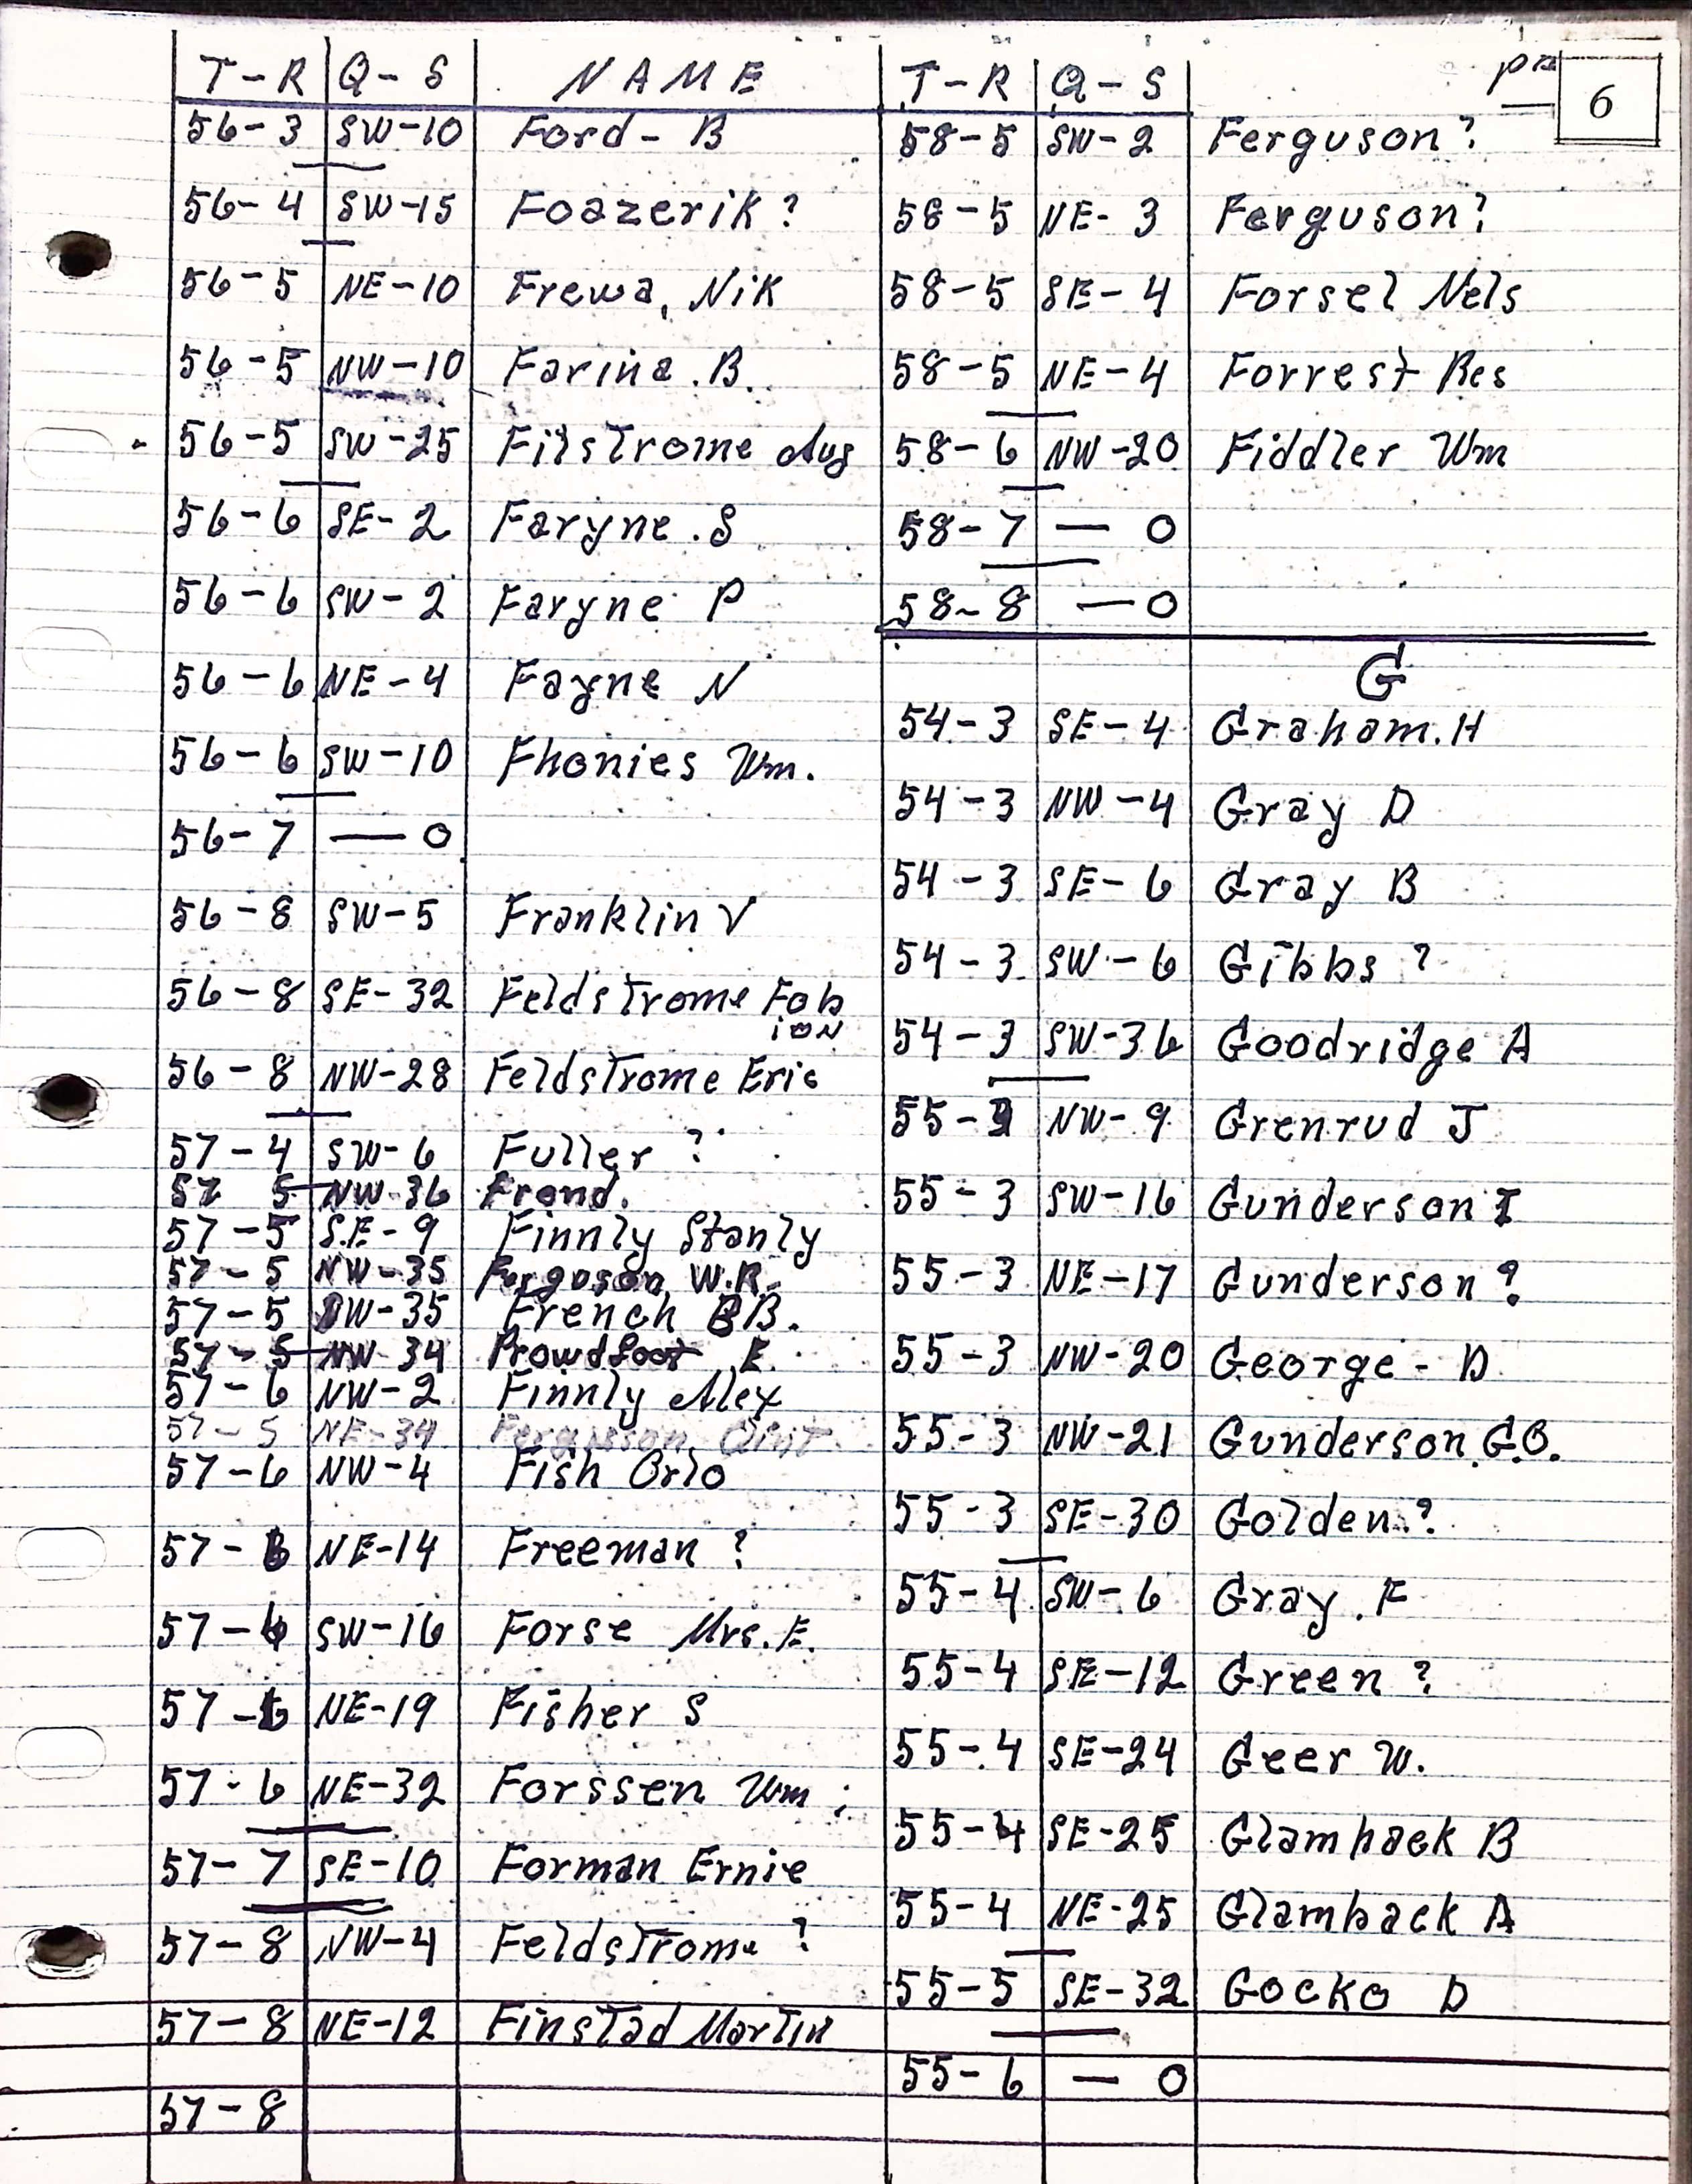 T-R Q-S NAME
56-3 SW-10 Ford-B
56-4 SW-15 Foazerik?
56-5 NE-10 Frewa, Nik
56-5 NW-10 Farina.B.
56-5 SW-25 Filstrome Aug
56-6 SE-2 Faryne.S
56-6 SW-2 Faryne P
56-6 NE-4 Fayne N
56-6 SW-10 Fhonies Wm.
56-7 — 0
56-8 SW-5 Franklin V
56-8 SE-32 Feldstrome Fab
ion
56-8 NW-28 Feldstrome Eric
57-4 SW-6 Fuller?
57 5 NW-36 Frond.
57-5 S.E-9 Finnly Stanly
57-5 NW-35 Ferguson, W.R.
57-5 SW-35 French BB.
57-5 NW-34 Prowdfoot E.
57-6 NW-2 Finnly Alex
57-5 NE-34 Fergusson
57-6 NW-4 Fish Orlo
57-6 NE-14 Freeman?
57-6 SW-16 Forse Mrs.E.
57-6 NE-19 Fisher S
57-6 NE-32 Forssen Wm
57-7 SE-10 Forman Ernie
57-8 NW-4 Feldstrome?
57-8 NE-12 Finstad Martin
57-8
T-R Q-S
6
58-5 SW-2 Ferguson?
58-5 NE-3 Ferguson?
58-5 SE-4 Forsel Nels
58-5 NE-4 Forrest Res
58-6 NW-20 Fiddler Wm
58-7 — 0
58-8 — 0
G
54-3 SE-4 Graham.H
54-3 NW-4 Gray D
54-3 SE-6 Gray B
54-3 SW-6 Gibbs?
54-3 SW-36 Goodridge A
NW-9 Grenrud J
55-3 SW-16 Gunderson I
55-3 NE-17 Gunderson?
55-3 NW-20 George-D
55-3 NW-21 Gunderson G.O.
55-3 SE-30 Golden?
55-4 SW-6 Gray.F
55-4 SE-12 Green?
55-4 SE-24 Geer W.
55-4 SE-25 Glamback B
55-4 NE-25 Glamback A
55-5 SE-32 Gocko D
55-6 — 0